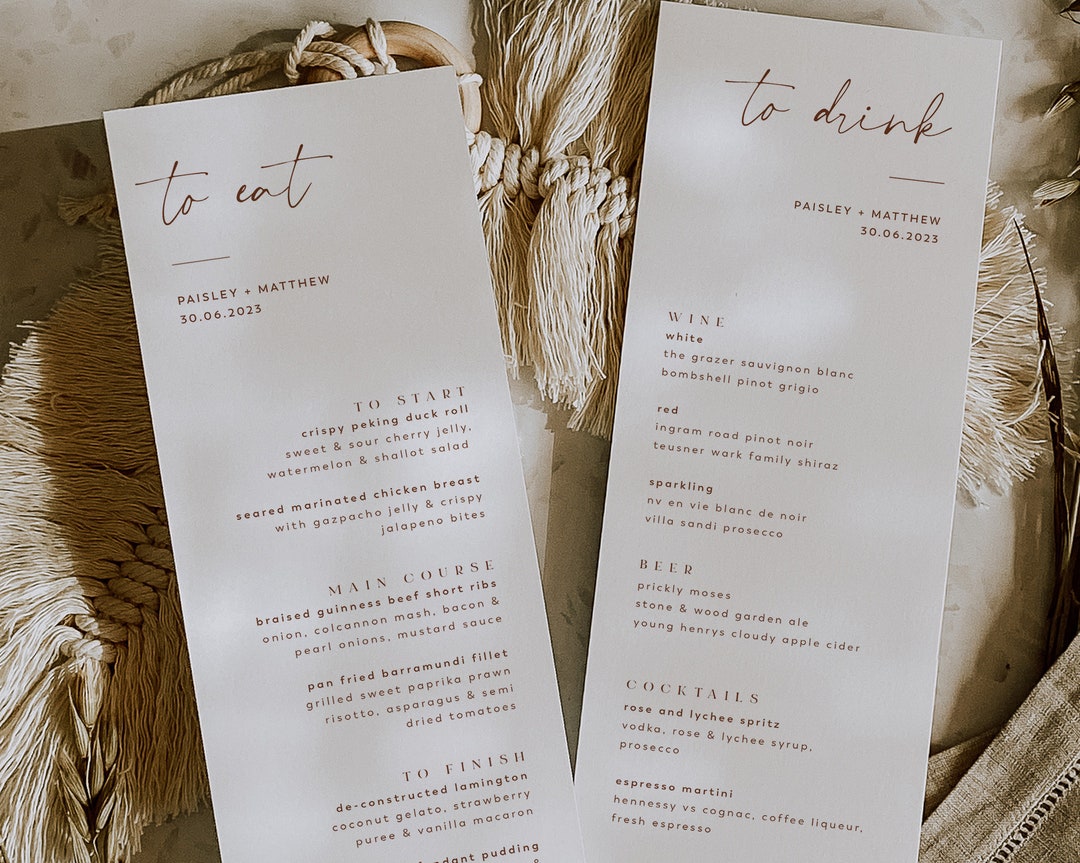 to eat
PAISLEY + MATTHEW
30.06.2023
TO START
crispy peking duck roll
sweet & sour cherry jelly,
watermelon & shallot salad
seared marinated chicken breast
with gazpacho jelly & crispy
jalapeno bites
MAIN COURSE
braised guinness beef short ribs
onion, colcannon mash, bacon &
pearl onions, mustard sauce
pan fried barramundi fillet
grilled sweet paprika prawn
risotto, asparagus & semi
dried tomatoes
TO FINISH
de-constructed lamington
coconut gelato, strawberry
puree & vanilla macaron
pudding
&
to drink
PAISLEY + MATTHEW
30.06.2023
WINE
white
the grazer sauvignon blanc
bombshell pinot grigio
red
ingram road pinot noir
teusner wark family shiraz
sparkling
nv en vie blanc de noir
villa sandi prosecco
BEER
prickly moses
stone & wood garden ale
young henrys cloudy apple cider
COCKTAILS
rose and lychee spritz
vodka, rose & lychee syrup,
prosecco
espresso martini
hennessy vs cognac, coffee liqueur,
fresh espresso